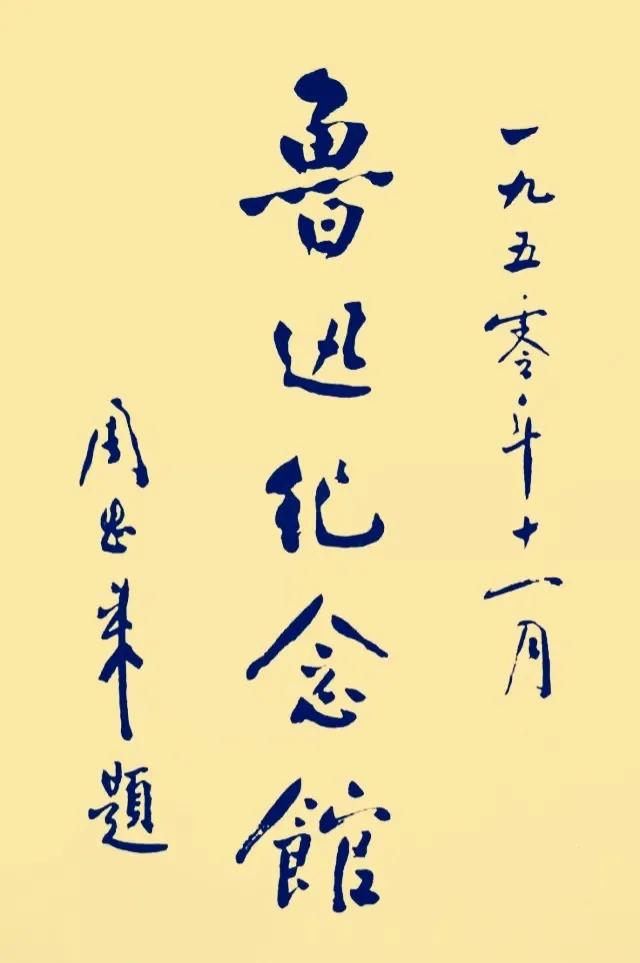 一九五零年十一月
魯迅紀念館
周恩来題